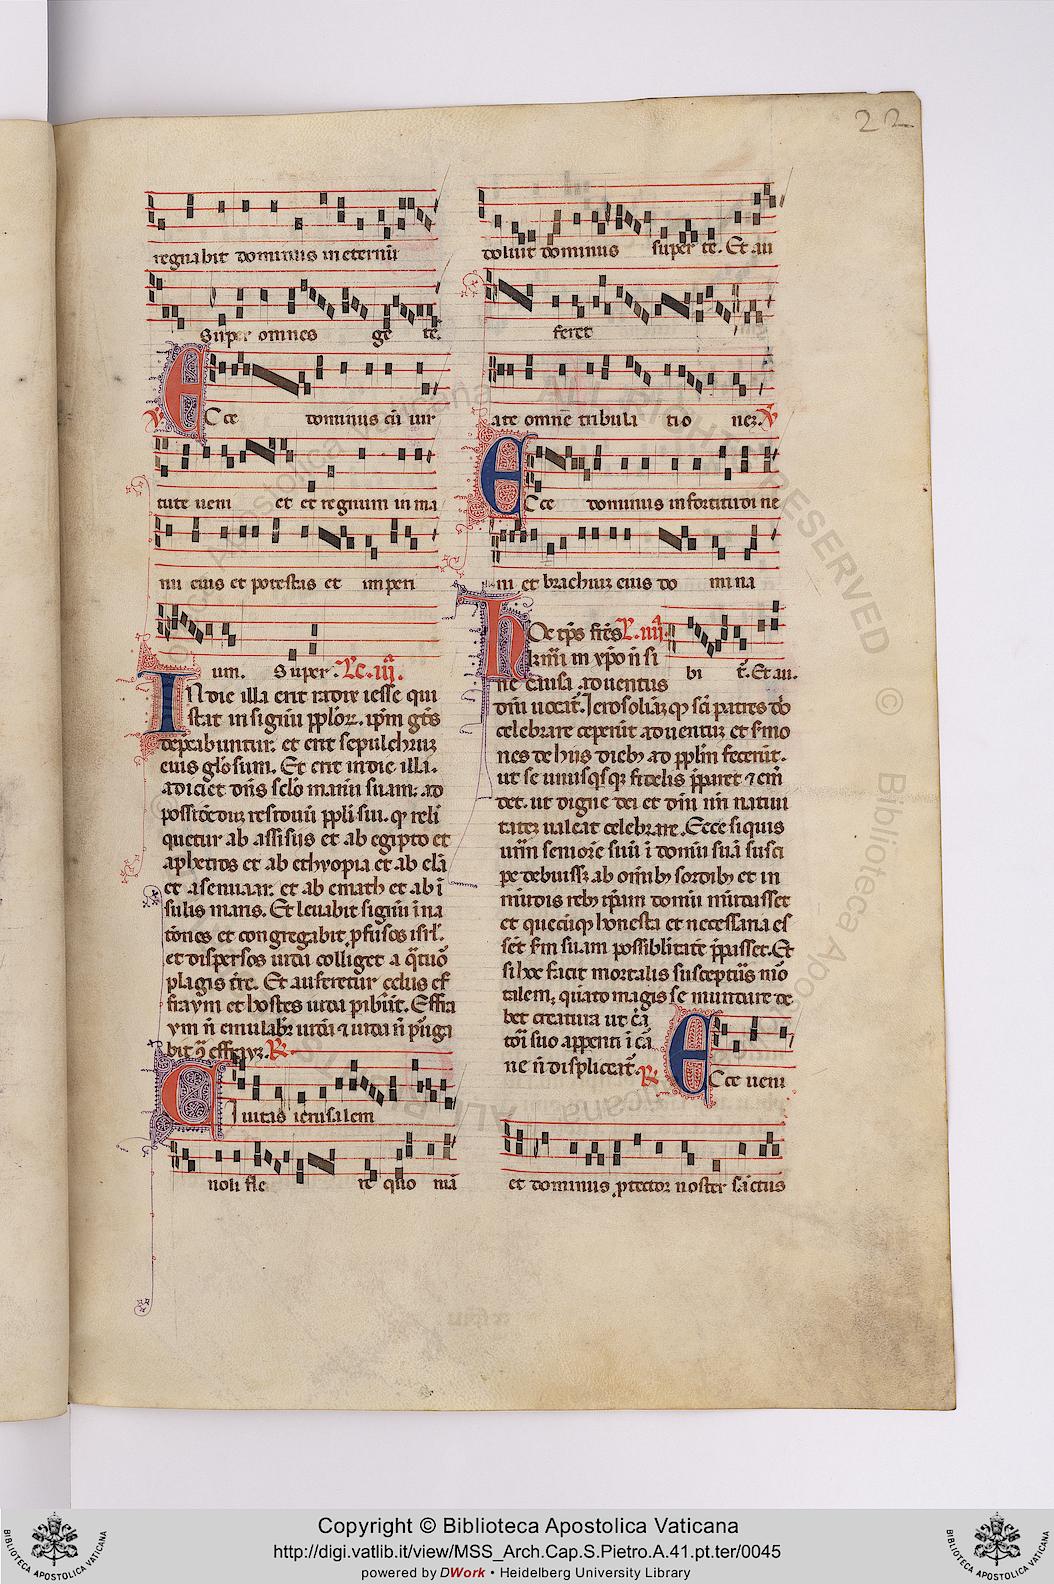 22
regnabit dominus in eternũ
Super omnes ge te.
℣. Ecce dominus cũ uir
tute ueni et et regnum in ma
nu eius et potestas et imperi
um. Super. Lc. iij.
In die illa erit radix iesse qui
stat in signũ pploꝝ. ip̃m gẽs
depcabuntur. et erit sepulchrum
eius glosum. Et erit in die illa.
adiciet dñs sclo manũ suam: ad
possidẽdũ residuũ ppli sui. qd reli
quetur ab assiriis et ab egipto et
a phetros et ab ethyopia et ab elã
et a sennaar. et ab emath et ab ĩ
sulis maris. Et leuabit signũ ĩ na
tiões et congregabit profugos isrl.
et dispersos iuda colliget a qtuor
plagis tre. Et auferetur celus ef
fraym et hostes iuda pibũt. Effra
ym ñ emulabr iudã ⁊ iuda ñ pugna
bit ɔ̃ effraym. ℟.
Ciuitas ierusalem
noli fle re quo niã
doluit dominus super te. Et au
feret
a te omnẽ tribula tio nez. ℣.
Ecce dominus in fortitudi ne
ni et brachium eius do mi na
Hoc tp̃s frẽs L. iiij.
kmi in xpo ñ si
bi t. Et au.
ne causa aduentus
dñi uocat. Ierosolimꝫ qp sci patres do
celebrare ceperũt aduentum et smo
nes de hiis dieb ad pplm fecerũt.
ut se unusqsqꝫ fidelis pparet ⁊ emẽ
det. ut digne dei et dñi nri natiui
tatez ualeat celebrare. Ecce si quis
urm seniorẽ suũ ĩ domũ suã susci
pe debuissꝫ ab omĩb sordib et in
mũdis reb ipam domũ mũdasset
et quecũqp honesta et necessaria es
sẽt scdm suam possibilitatẽ pparasset. Et
si hoc facit mortalis suscepturus mor
talem, quãto magis se mundare de
bet creatura ut crea
tori suo apparenti ĩ car
ne ñ displiceat. ℟.
Ecce ueni
et dominus ptector noster sanctus
Copyright © Biblioteca Apostolica Vaticana
http://digi.vatlib.it/view/MSS_Arch.Cap.S.Pietro.A.41.pt.ter/0045
powered by DWork • Heidelberg University Library
BIBLIOTECA APOSTOLICA VATICANA
BIBLIOTECA APOSTOLICA VATICANA